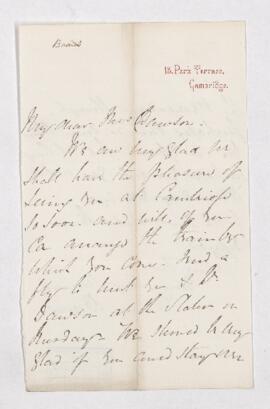 Brooks
15. Park Terrace,
Cambridge.
My dear Mrs Dawson.
We are very glad we
shall have the pleasure of
seeing you at Cambridge
so soon. and will, if you
can arrange the train by
which you come send a
fly to meet you & Dr
Dawson at the Station on
Thursday. We should be very
glad if you could stay over